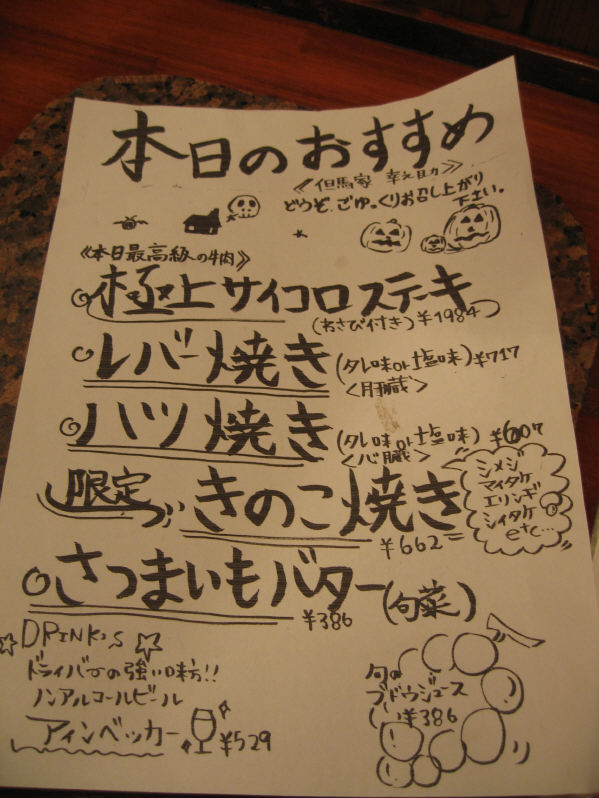 本日のおすすめ
《但馬家 幸之助》
どうぞ、ごゆっくりお召し上がり
下さい。
《本日最高級の牛肉》
極上サイコロステーキ
(わさび付き) ¥1984
レバー焼き (タレ味or塩味) ¥717
<肝臓>
ハツ焼き (タレ味or塩味) ¥607
<心臓>
限定 きのこ焼き
¥662
シメジ
マイタケ
エリンギ
シイタケ
etc...
さつまいもバター (旬菜)
¥386
DRINKS
ドライバーの強い味方!!
ノンアルコールビール
アインベッカー ¥529
旬の
ブドウジュース
¥386